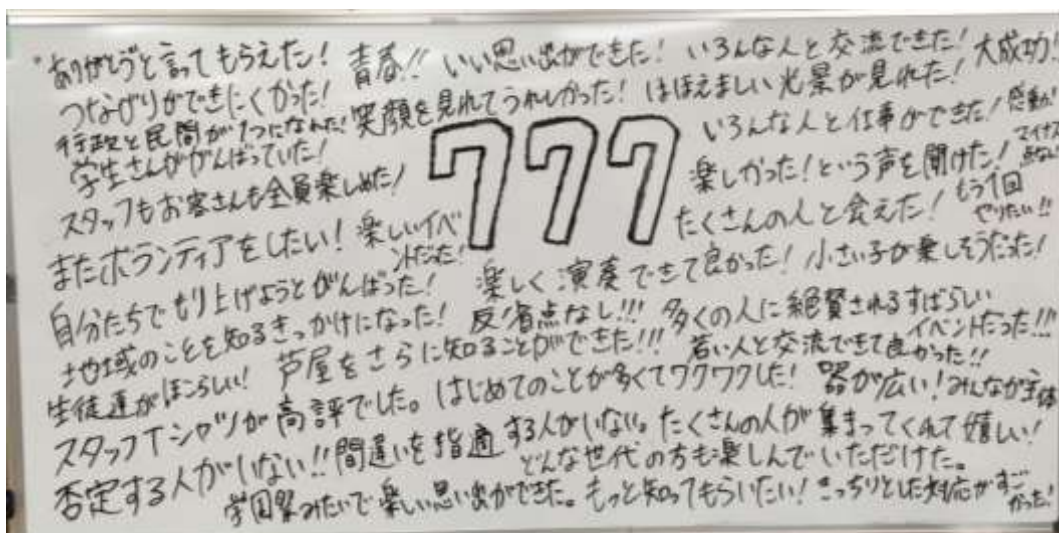 ありがとうと言ってもらえた! 青春!! いい思い出ができた! いろんな人と交流できた! 大成功!!
つながりができにくかった! 笑顔を見れてうれしかった! ほほえましい光景が見れた!
行政と民間が1つになれた! いろんな人と仕事ができた! 感動!
学生さんががんばっていた! 777 楽しかった!という声を聞けた! マイナス点なし
スタッフもお客さんも全員楽しめた! たくさんの人と会えた! もう1回やりたい!!
またボランティアをしたい! 楽しいイベントだった!
自分たちでもり上げようとがんばった! 楽しく演奏できて良かった! 小さい子が楽しそうだった!
地域のことを知るきっかけになった! 反省点なし!!! 多くの人に絶賛されるすばらしいイベントだった!!!
生徒達がほこらしい! 芦屋をさらに知ることができた!!! 若い人と交流できて良かった!!
スタッフTシャツが高評でした。 はじめてのことが多くてワクワクした! 器が広い! みんなが主体
否定する人がいない!! 間違いを指適する人がいない。 たくさんの人が集まってくれて嬉しい!
どんな世代の方も楽しんでいただけた。
学園祭みたいで楽しい思い出ができた。 もっと知ってもらいたい! きっちりとした対応がすごかった!